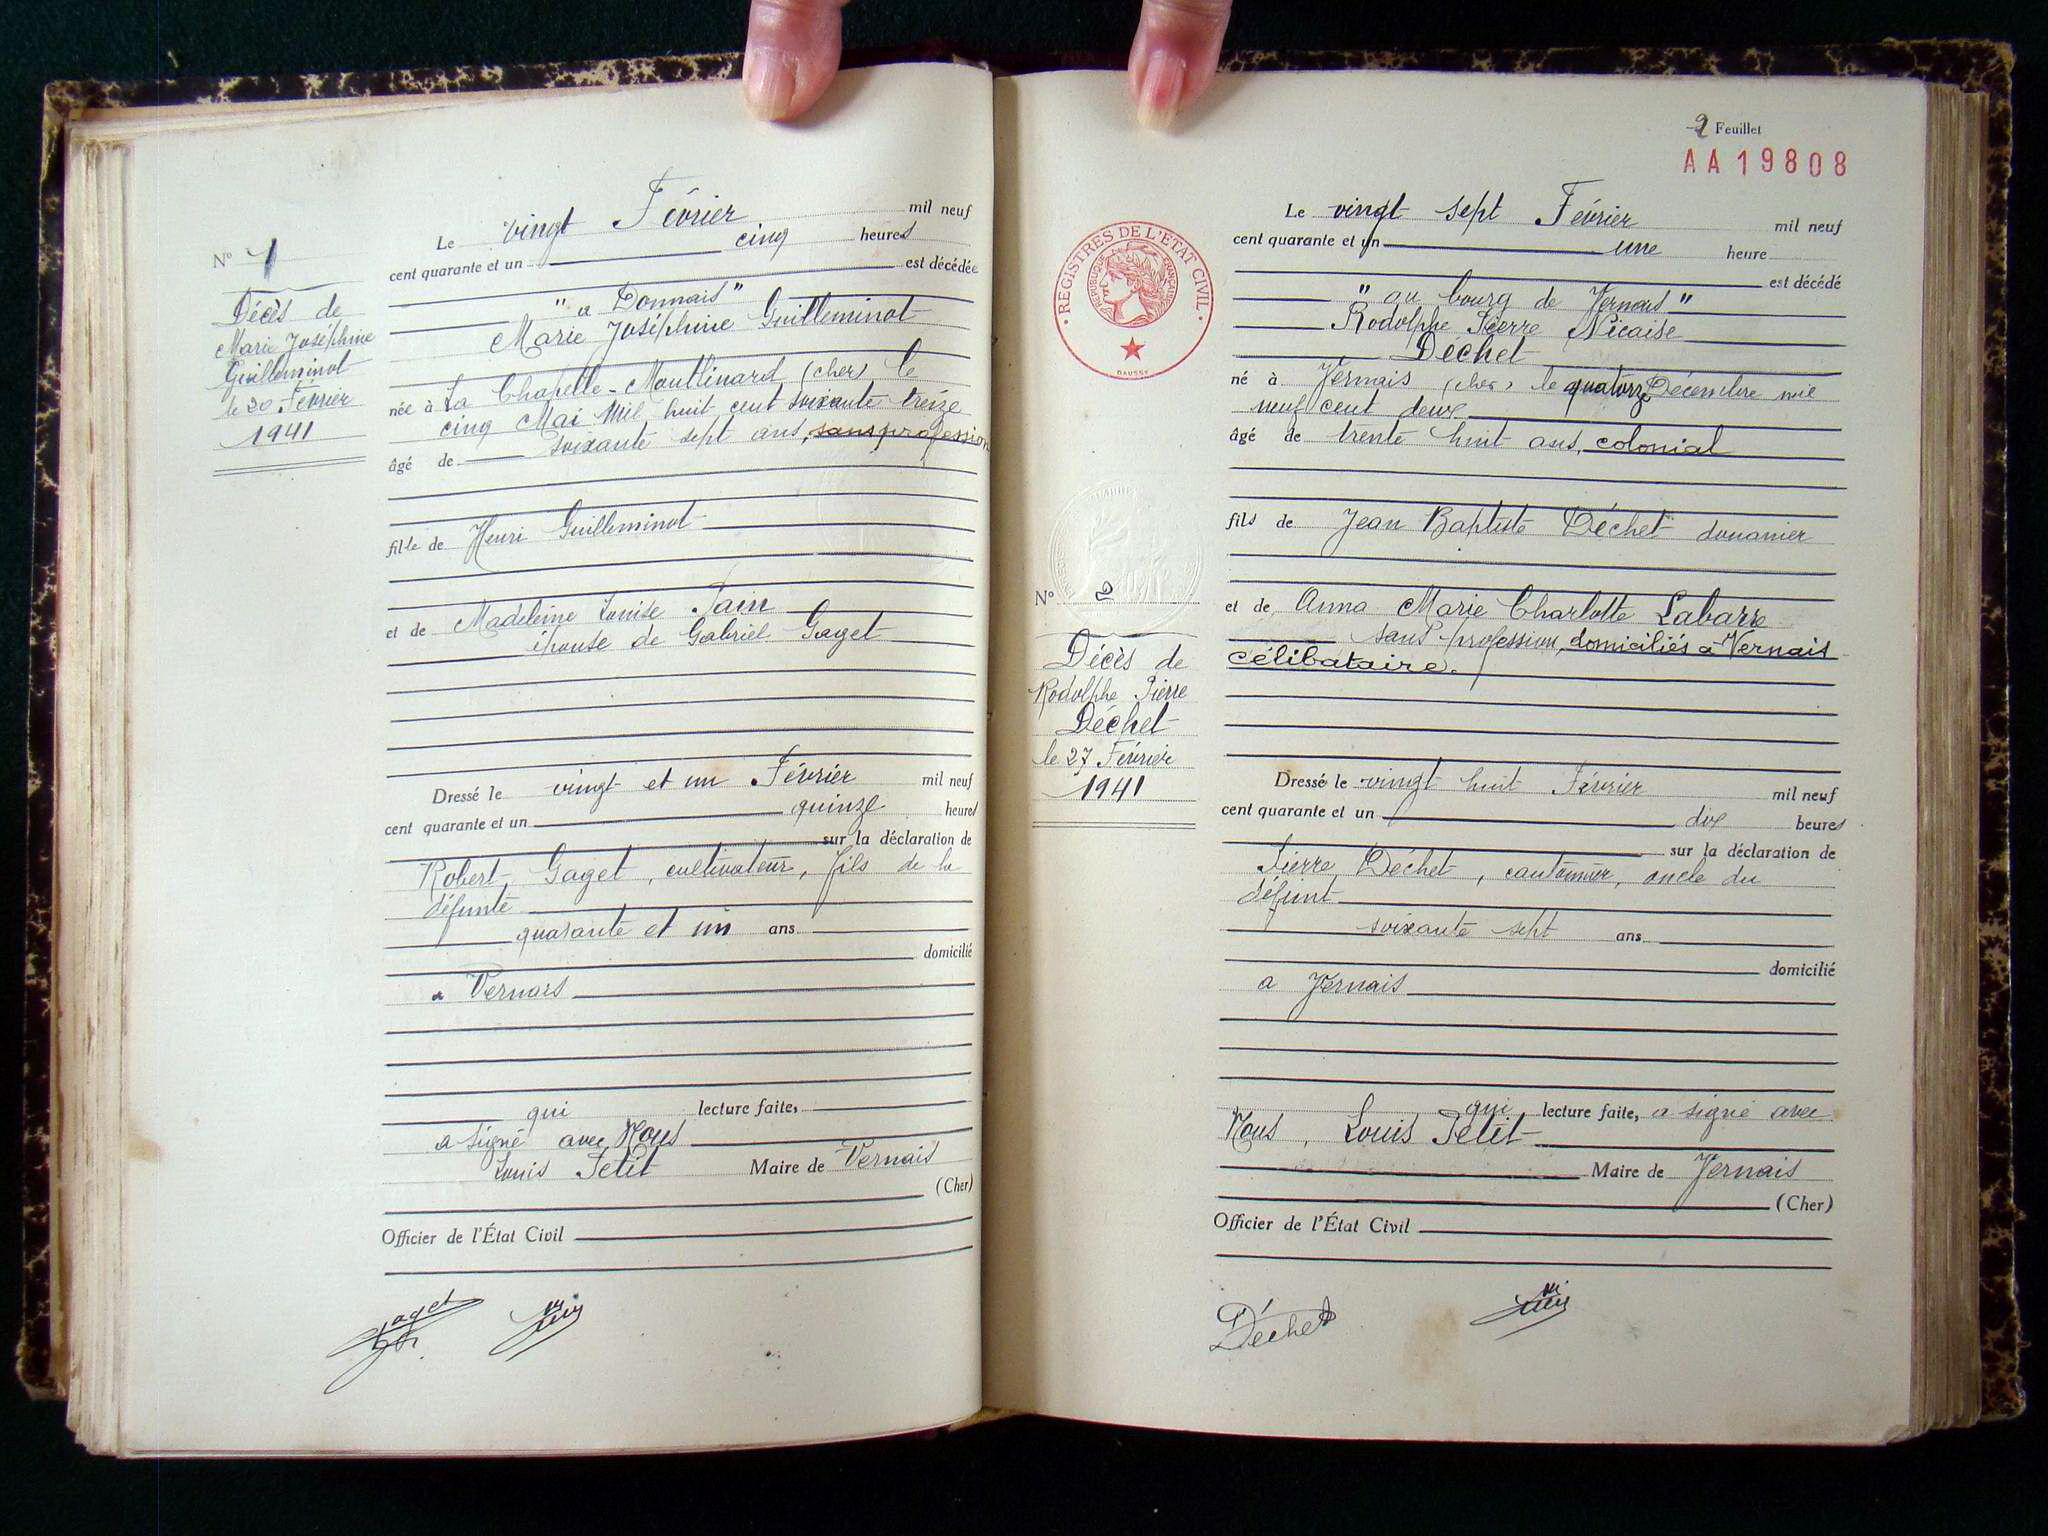 N° 1
Décès de
Marie Joséphine
Guilleminot
le 20 Février
1941
Le vingt Février mil neuf
cent quarante et un cinq heures
est décédée
"a Donnais"
Marie Joséphine Guilleminot
née à La Chapelle-Montlinard (cher) le
cinq Mai mil huit cent soixante treize
âgé de soixante sept ans, sans profession
fille de Henri Guilleminot
et de Madeleine Louise Pain
épouse de Gabriel Gaget
Dressé le vingt et un Février mil neuf
cent quarante et un quinze heures
sur la déclaration de
Robert Gaget, cultivateur, fils de la
défunte
quarante et un ans
domicilié
a Vernais
qui lecture faite,
a signé avec Nous
Louis Petit Maire de Vernais
(Cher)
Officier de l'État Civil
Gaget
2 Feuillet
AA19808
REGISTRES DE L'ÉTAT CIVIL
RÉPUBLIQUE FRANÇAISE
DAUSSY
N° 2
Décès de
Rodolphe Pierre
Déchet
le 27 Février
1941
Le vingt sept Février mil neuf
cent quarante et un une heure
est décédé
"au bourg de Vernais"
Rodolphe Pierre Nicaise
Déchet
né à Vernais (cher) le quatorze Décembre mil
neuf cent deux
âgé de trente huit ans, colonial
fils de Jean Baptiste Déchet douanier
et de Anna Marie Charlotte Labarre
sans profession, domiciliés à Vernais
célibataire.
Dressé le vingt huit Février mil neuf
cent quarante et un dix heures
sur la déclaration de
Pierre Déchet, cantonnier, oncle du
défunt
soixante sept ans
domicilié
a Vernais
qui lecture faite, a signé avec
Nous, Louis Petit
Maire de Vernais
(Cher)
Officier de l'État Civil
Déchet